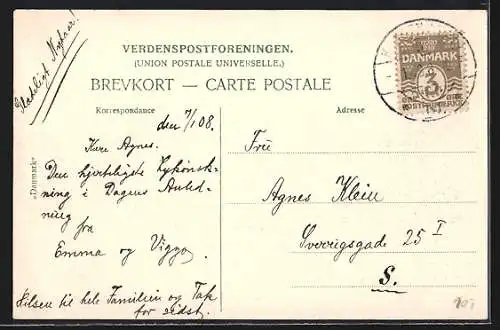 Glædeligt Nytaar!
VERDENSPOSTFORENINGEN.
(UNION POSTALE UNIVERSELLE.)
BREVKORT — CARTE POSTALE
DANMARK
3
Korrespondance
Adresse
den 7/1 08.
Kære Agnes.
Den hjerteligste Lykønsk-
ning i Dagens Anled-
ning fra
Emma og Viggo.
Hilsen til hele Familien og Tak
for sidst.
„Danmark“
Frü
Agnes Klein
Sverrigsgade 25 I
S.